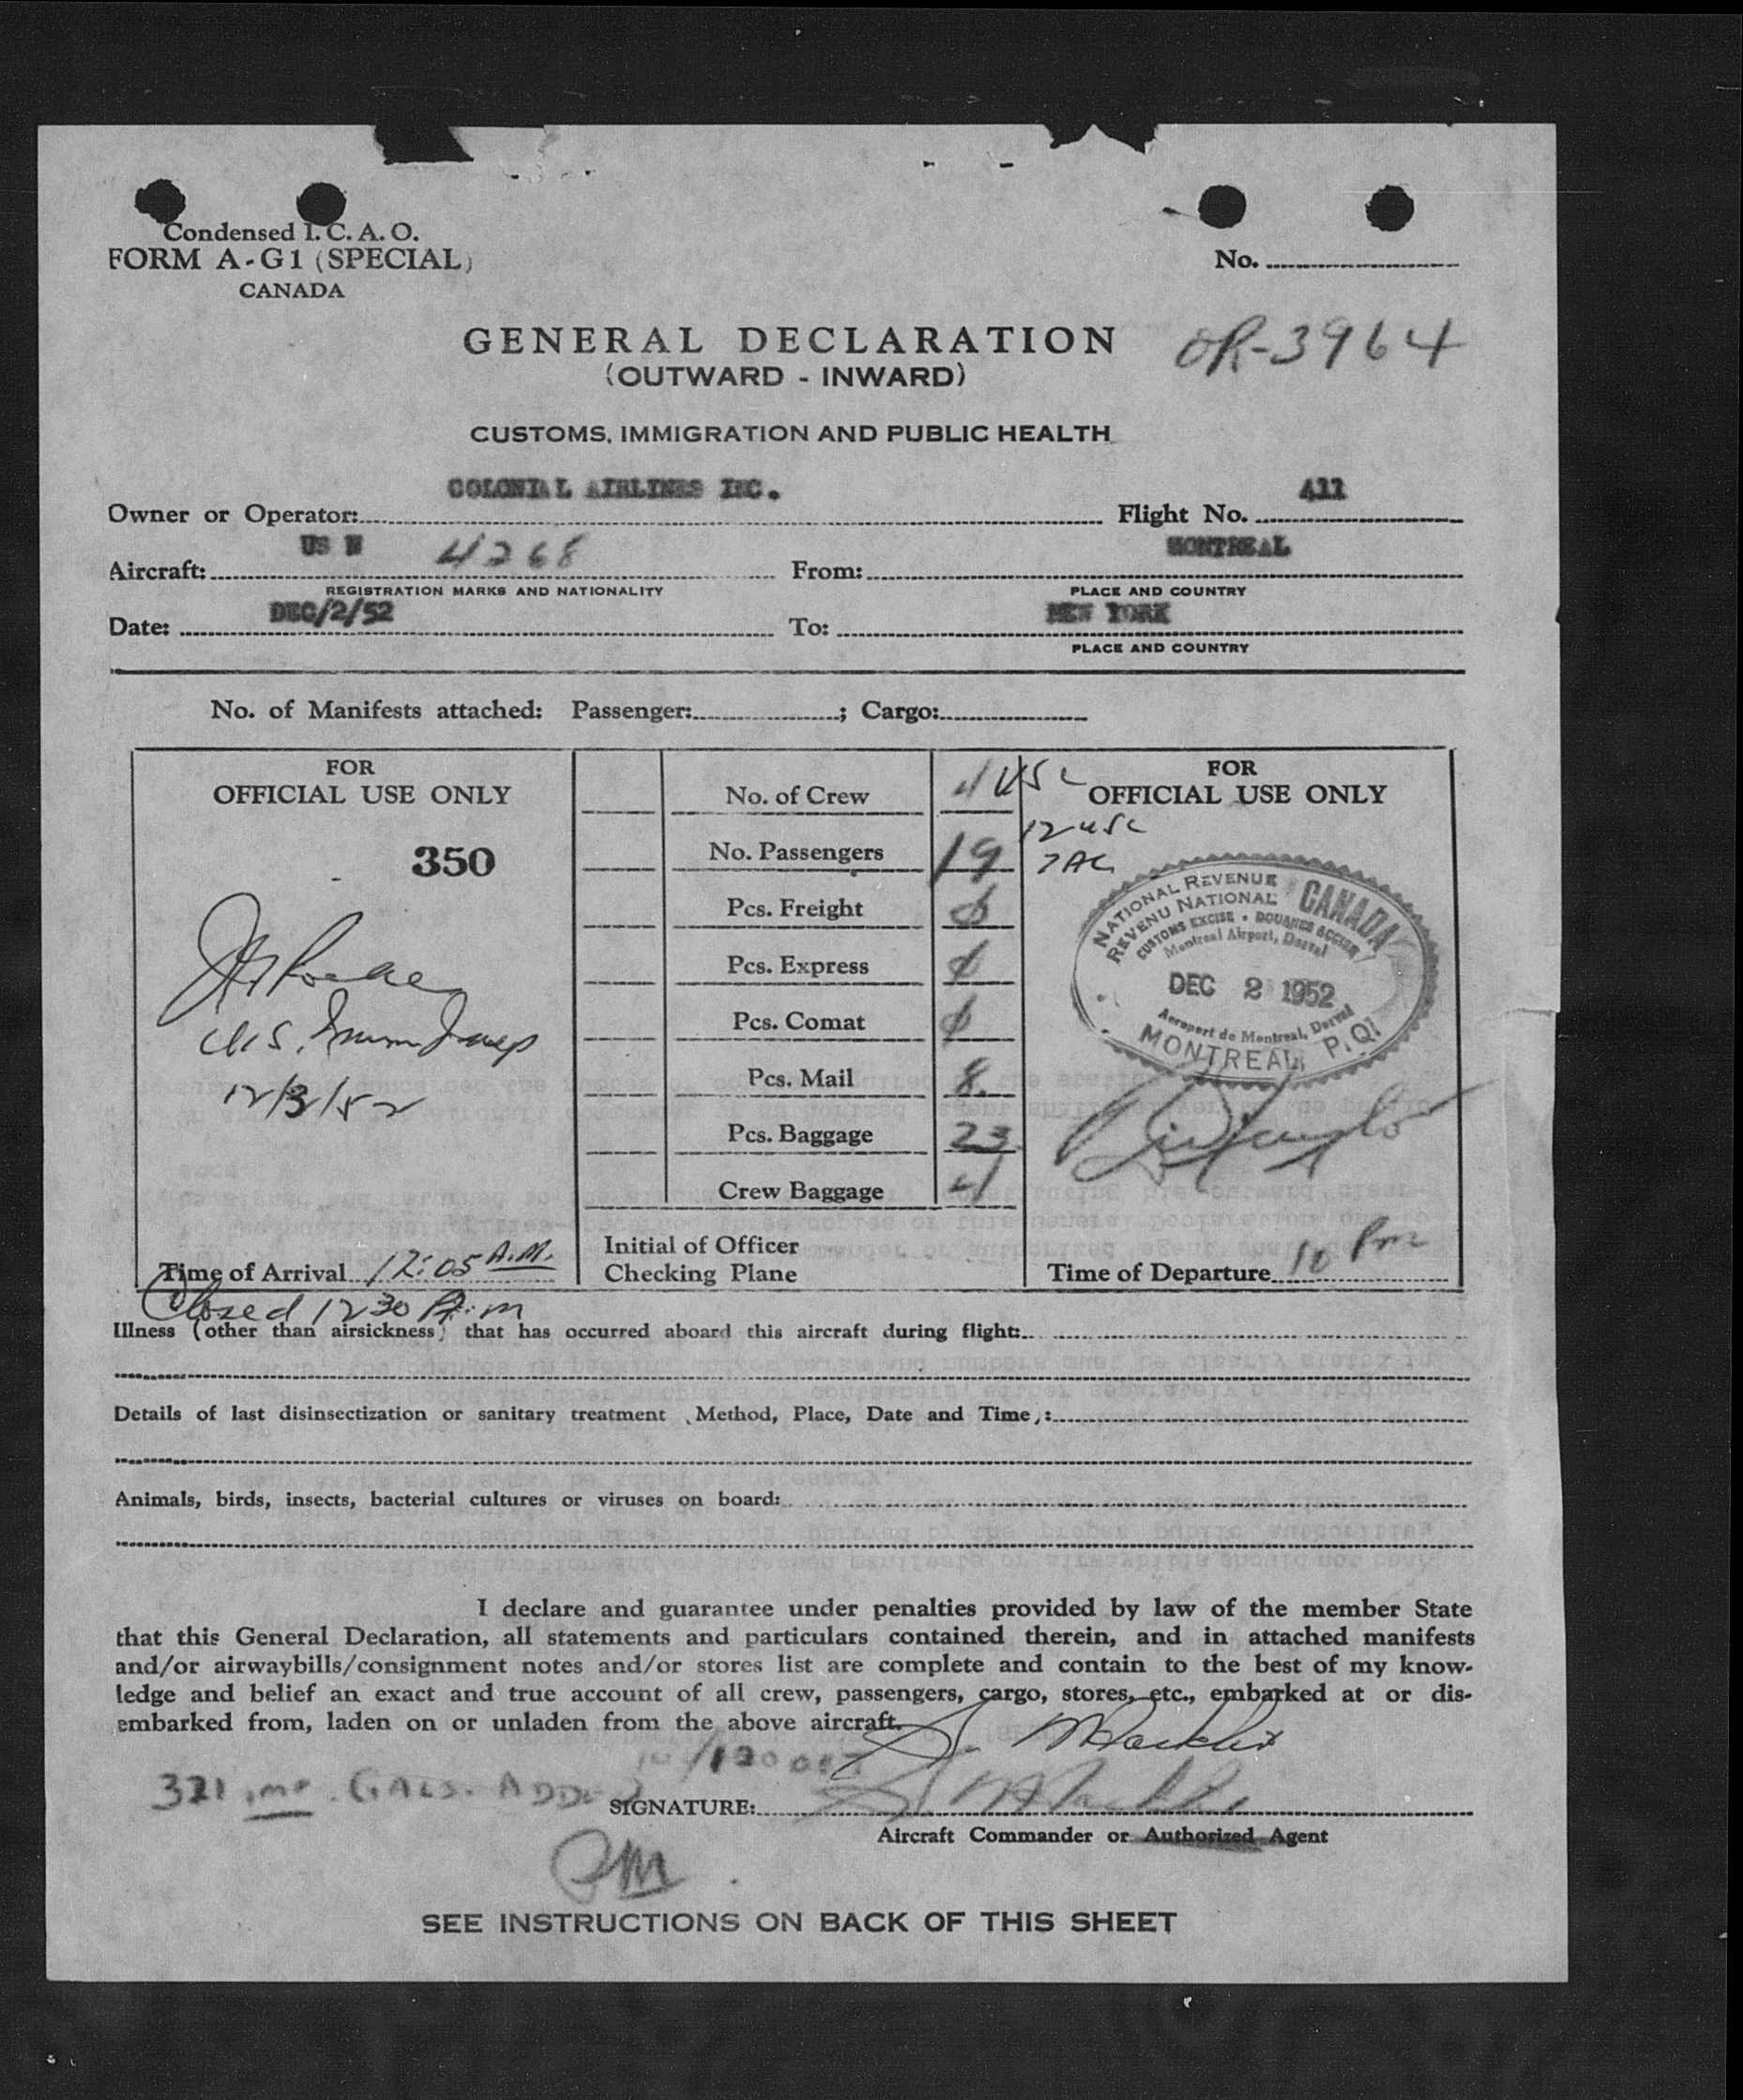 Condensed I.C.A.O.
FORM A-G1 (SPECIAL)
CANADA
No.
GENERAL DECLARATION
OR-3964
(OUTWARD - INWARD)
CUSTOMS, IMMIGRATION AND PUBLIC HEALTH
COLONIAL AIRLINES INC. 411
Owner or Operator: Flight No.
US N 4268 MONTREAL
Aircraft: From:
REGISTRATION MARKS AND NATIONALITY PLACE AND COUNTRY
DEC/2/52 NEW YORK
Date: To:
PLACE AND COUNTRY
No. of Manifests attached: Passenger: ; Cargo:
FOR
OFFICIAL USE ONLY
350
U.S. Immn Insp
12/3/52
Time of Arrival 12:05 A.M.
Closed 1230 A.M
No. of Crew 4 USC
No. Passengers 19 12 USC
7 AC
Pcs. Freight 0
Pcs. Express 0
Pcs. Comat 0
Pcs. Mail 8
Pcs. Baggage 23
Crew Baggage 4
Initial of Officer
Checking Plane
FOR
OFFICIAL USE ONLY
NATIONAL REVENUE CANADA
REVENU NATIONAL
CUSTOMS EXCISE • DOUANES ACCISE
Montreal Airport, Dorval
DEC 2 1952
Aeroport de Montreal, Dorval
MONTREAL, P.Q.
Time of Departure 10 Pm
Illness (other than airsickness) that has occurred aboard this aircraft during flight:
Details of last disinsectization or sanitary treatment (Method, Place, Date and Time):
Animals, birds, insects, bacterial cultures or viruses on board:
I declare and guarantee under penalties provided by law of the member State
that this General Declaration, all statements and particulars contained therein, and in attached manifests
and/or airwaybills/consignment notes and/or stores list are complete and contain to the best of my know-
ledge and belief an exact and true account of all crew, passengers, cargo, stores, etc., embarked at or dis-
embarked from, laden on or unladen from the above aircraft.
100/130 OCT
321 imp. GALS. ADDED
SIGNATURE:
Aircraft Commander or Authorized Agent
PM
SEE INSTRUCTIONS ON BACK OF THIS SHEET